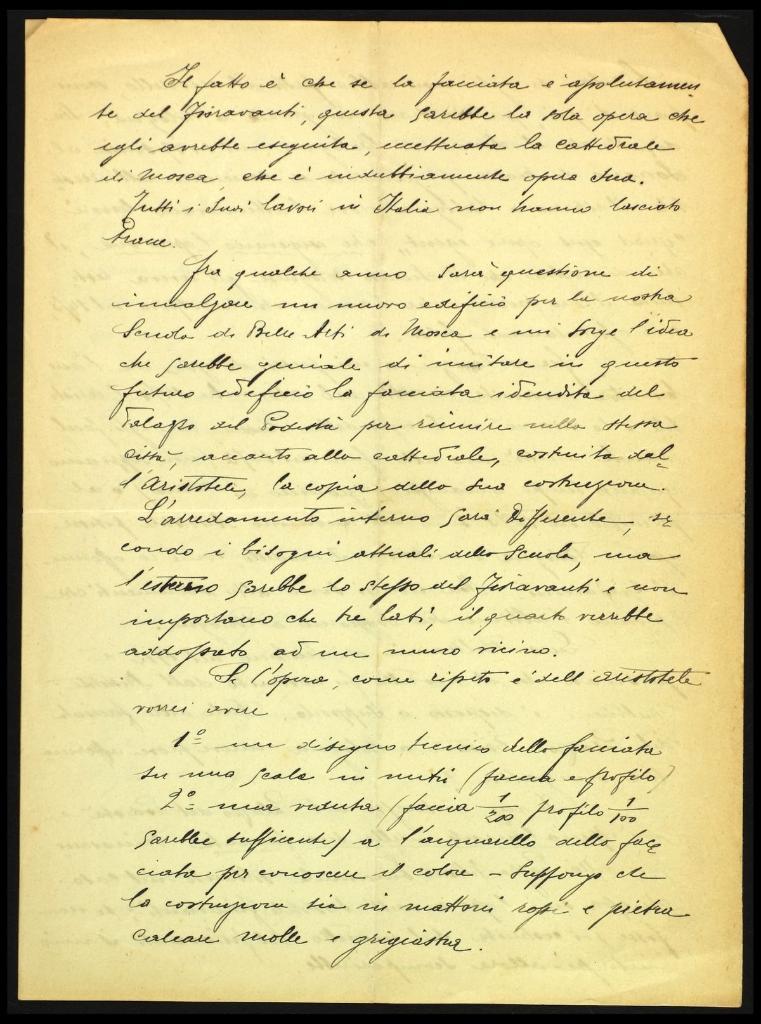 Il fatto è che se la facciata è assolutamen
te del Fioravanti, questa sarebbe la sola opera che
egli avrebbe eseguita, eccettuata la cattedrale
di Mosca, che è indubbiamente opera sua.
Tutti i suoi lavori in Italia non hanno lasciato
tracce.
Fra qualche anno sarà questione di
innalzare un nuovo edificio per la nostra
Scuola di Belle Arti di Mosca e mi sorge l'idea
che sarebbe geniale di imitare in questo
futuro edeficio la facciata idendita del
Palazzo del Podestà per riunire nella stessa
città, accanto alla cattedrale, costruita dal-
l'Aristotele, la copia della sua costruzione.
L'arredamento interno sarà differente, se
condo i bisogni attuali della Scuola, ma
l'esterno sarebbe lo stesso del Fioravanti e non
importano che tre lati, il quarto verrebbe
addossato ad un muro vicino.
Se l'opera, come ripeto è dell'Aristotele
vorrei avere
1º un disegno tecnico della facciata
su una scala in metri (faccia e profilo)
2º una veduta (faccia 1/200 profilo 1/100
sarebbe sufficente) a l'acquarello della fac
ciata per conoscere il colore – Suppongo che
la costruzione sia in mattoni rossi e pietra
calcare molle e grigiastra.